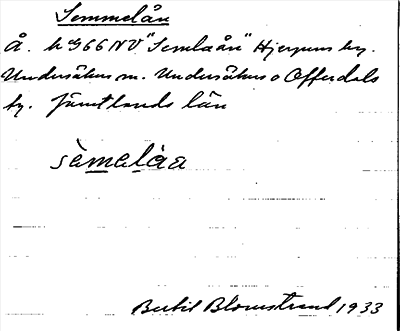 Semmelån
Å. kg 66 NV "Semlaån" Hjerpens by.
Undersåkers sn. Undersåkers o Offerdals
by. Jämtlands län
sèmelàa
Bertil Blomstrand 1933